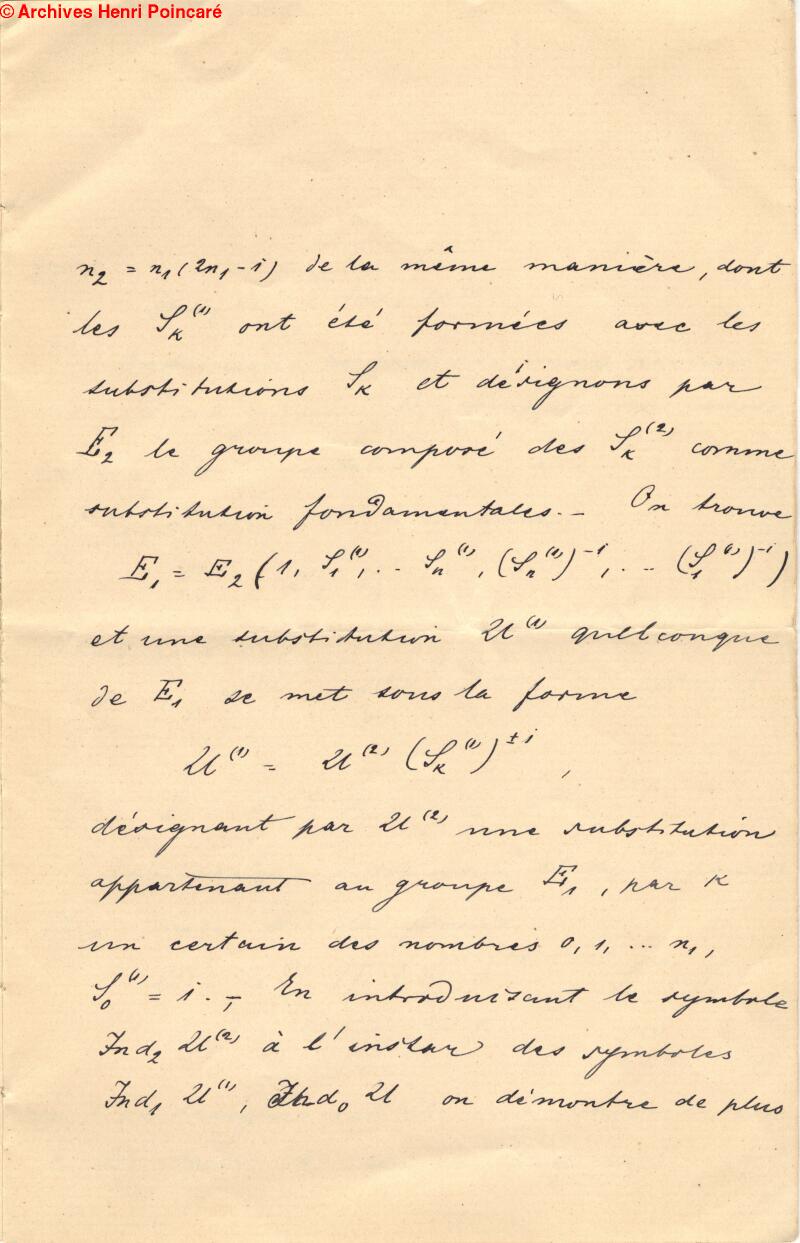 © Archives Henri Poincaré
n₂ = n₁(2n₁-1) de la même manière, dont
les S_k^(1) ont été formées avec les
substitutions S_k et désignons par
E₂ le groupe composé des S_k^(2) comme
substitution fondamentales. — On trouve
E₁ = E₂ (1, S₁^(1), .. S_n^(1), (S_n^(1))^-1, .. (S₁^(1))^-1)
et une substitution U^(1) quelconque
de E₁ se met sous la forme
U^(1) = U^(2) (S_k^(1))^±1 ,
désignant par U^(2) une substitution
appartenant au groupe E₁, par k
un certain des nombres 0, 1, ... n₁,
S₀^(1) = 1. — En introduisant le symbole
Ind₂ U^(2) à l'instar des symboles
Ind₁ U^(1), Ind₀ U on démontre de plus